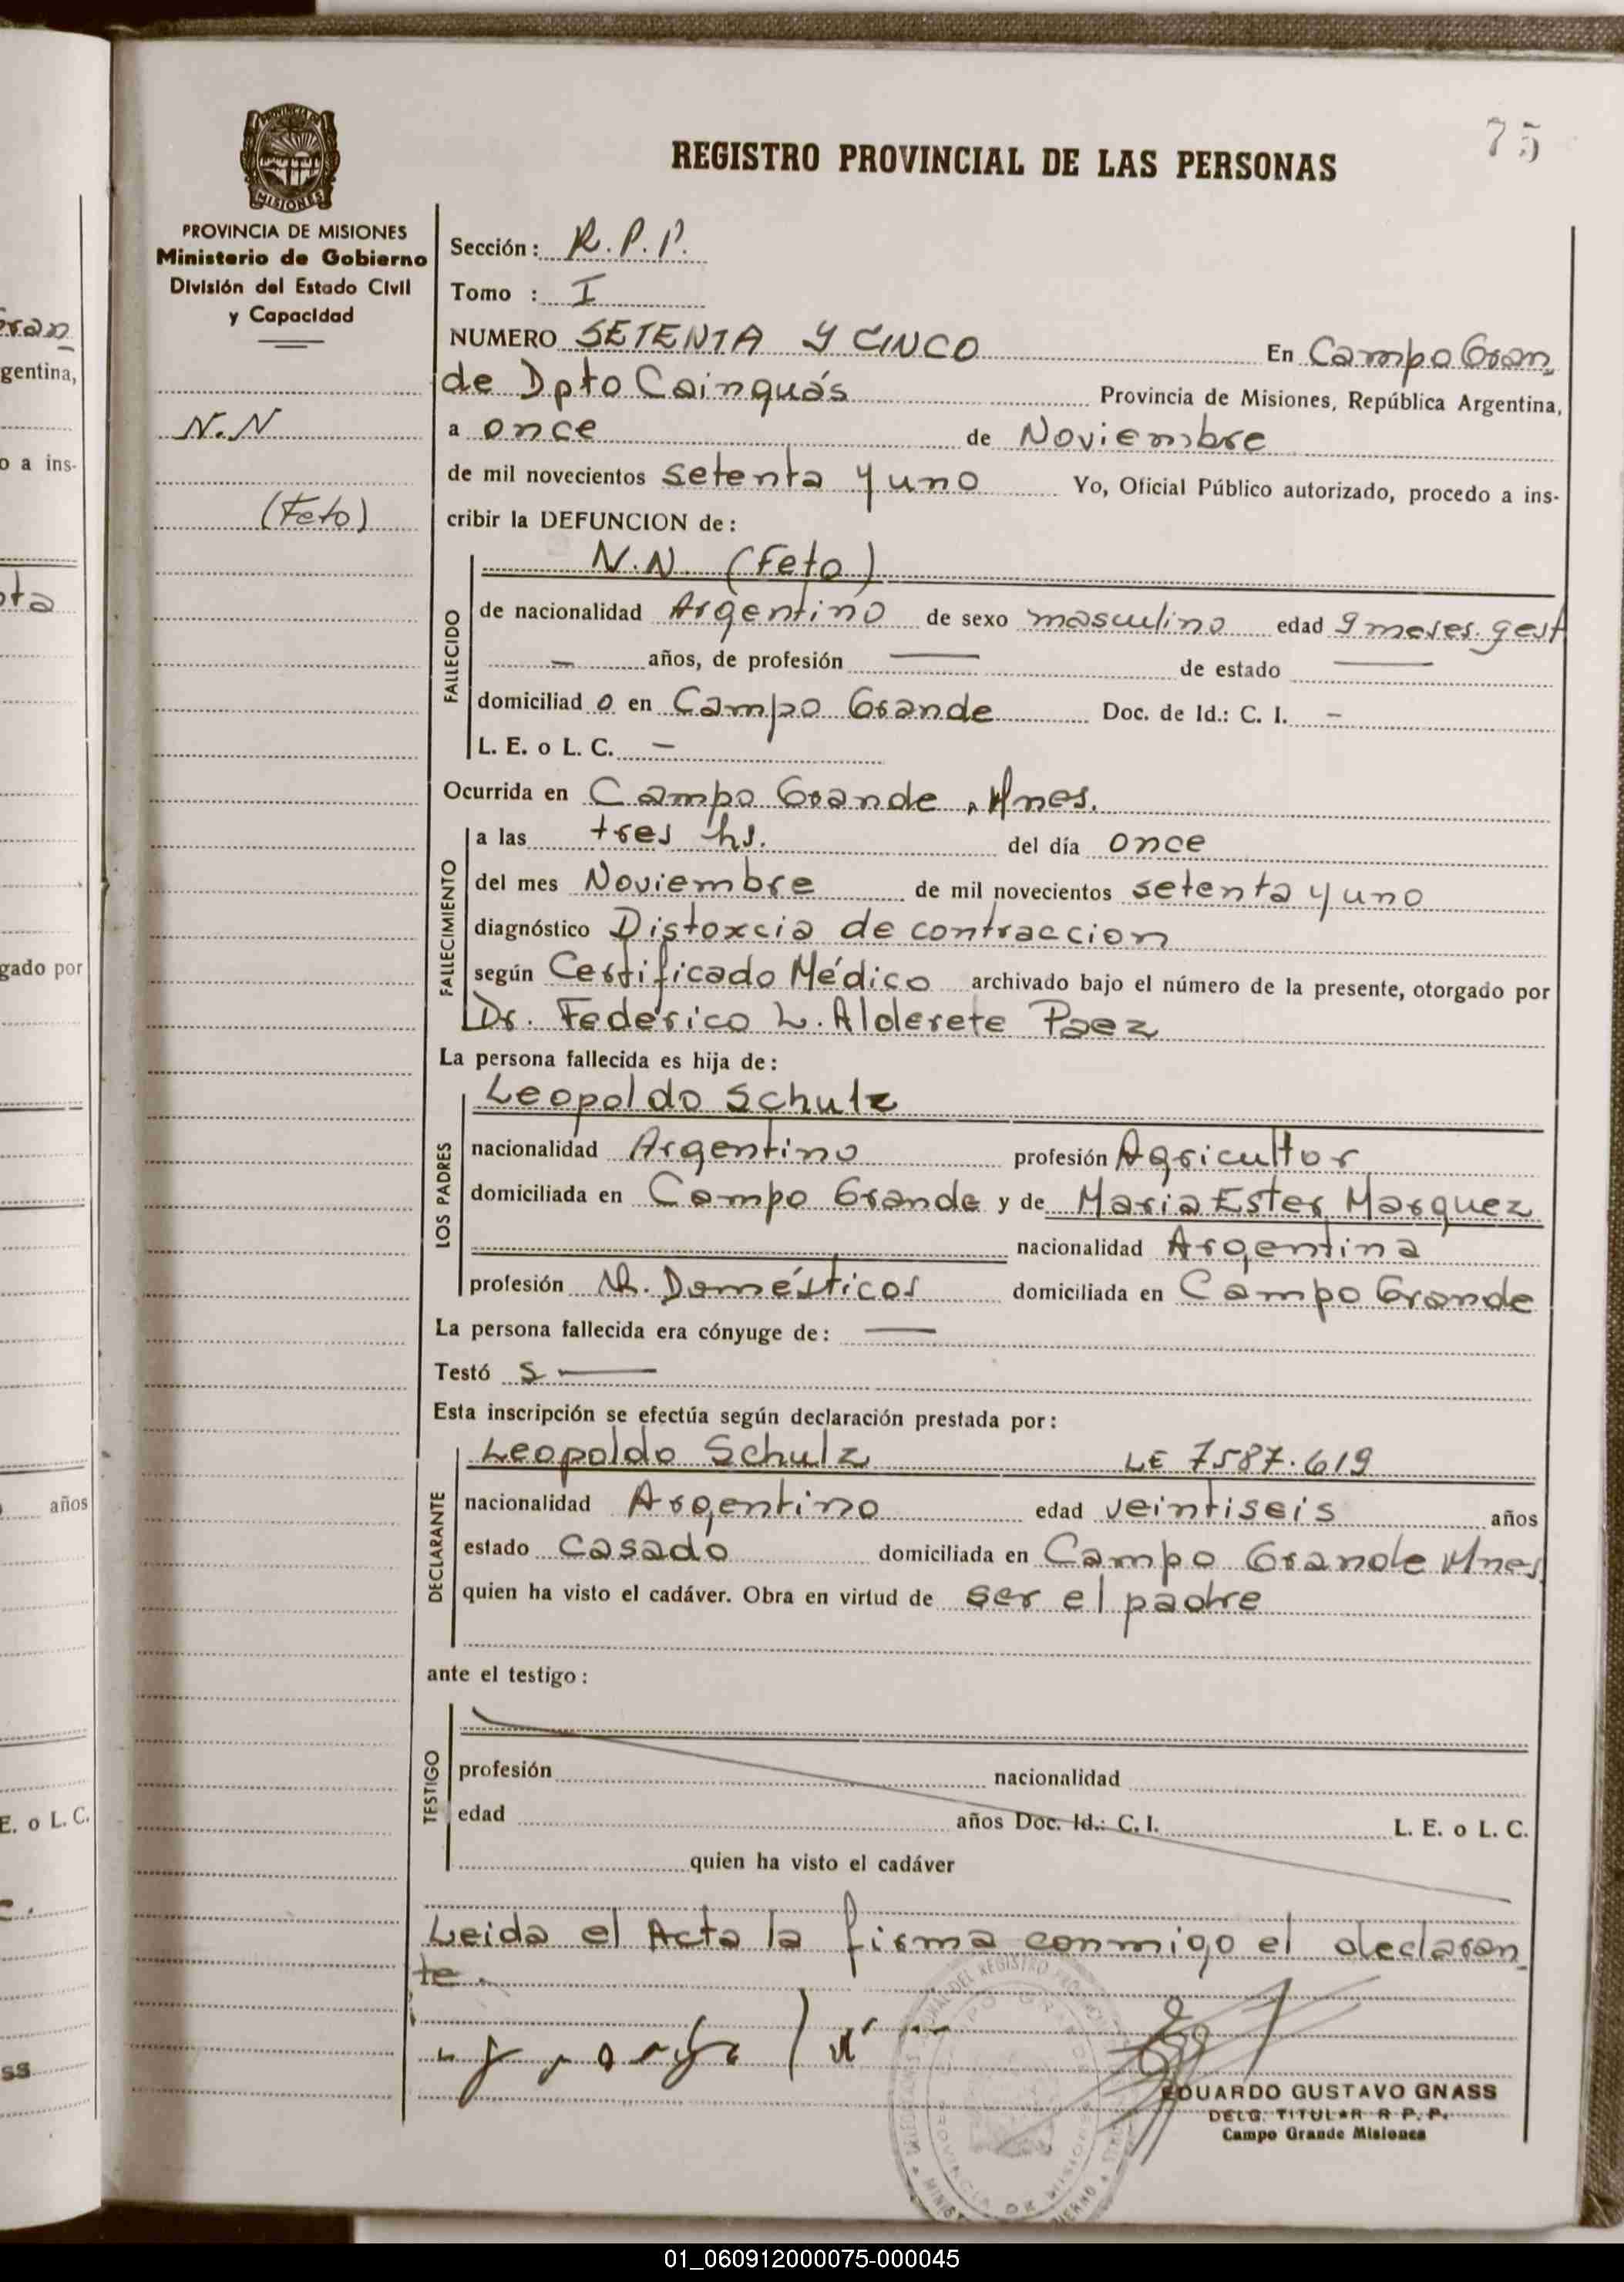 75
REGISTRO PROVINCIAL DE LAS PERSONAS
PROVINCIA DE MISIONES
Ministerio de Gobierno
División del Estado Civil
y Capacidad
N.N
(Feto)
Sección: R.P.P.
Tomo : I
NUMERO SETENTA Y CINCO En Campo Gran
de Dpto Cainguás Provincia de Misiones, República Argentina,
a once de Noviembre
de mil novecientos setenta y uno Yo, Oficial Público autorizado, procedo a ins-
cribir la DEFUNCION de:
N.N. (Feto)
FALLECIDO
de nacionalidad Argentino de sexo masculino edad 9 meses gest
— años, de profesión — de estado —
domiciliad o en Campo Grande Doc. de Id.: C. I. —
L. E. o L. C. —
Ocurrida en Campo Grande, Mnes.
FALLECIMIENTO
a las tres hs. del día once
del mes Noviembre de mil novecientos setenta y uno
diagnóstico Distoxcia de contraccion
según Certificado Médico archivado bajo el número de la presente, otorgado por
Dr. Federico L. Alderete Paez
La persona fallecida es hija de:
LOS PADRES
Leopoldo Schulz
nacionalidad Argentino profesión Agricultor
domiciliada en Campo Grande y de Maria Ester Marquez
nacionalidad Argentina
profesión Q. Domésticos domiciliada en Campo Grande
La persona fallecida era cónyuge de: —
Testó S —
Esta inscripción se efectúa según declaración prestada por:
DECLARANTE
Leopoldo Schulz LE 7587.619
nacionalidad Argentino edad veintiseis años
estado Casado domiciliada en Campo Grande Mnes
quien ha visto el cadáver. Obra en virtud de ser el padre
ante el testigo:
TESTIGO
profesión nacionalidad
edad años Doc. Id.: C. I. L. E. o L. C.
quien ha visto el cadáver
Leida el Acta la firma conmigo el declaran
te.
EDUARDO GUSTAVO GNASS
DELG. TITULAR R. P. P.
Campo Grande Misiones
gran
gentina,
o a ins-
ota
gado por
años
E. o L. C.
ss
01_060912000075-000045